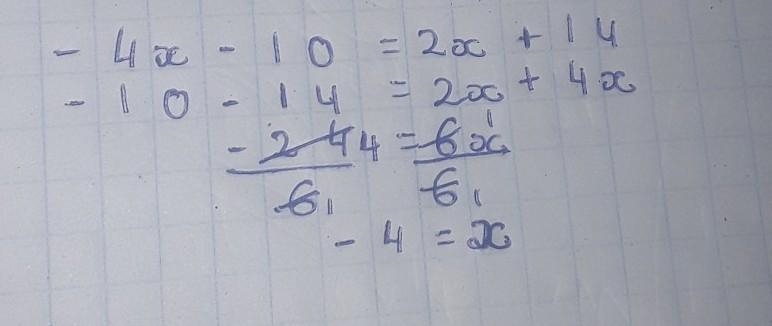 - 4x - 10 = 2x + 14
- 10 - 14 = 2x + 4x
- 24 4 = 6x 1
6 1 6 1
- 4 = x